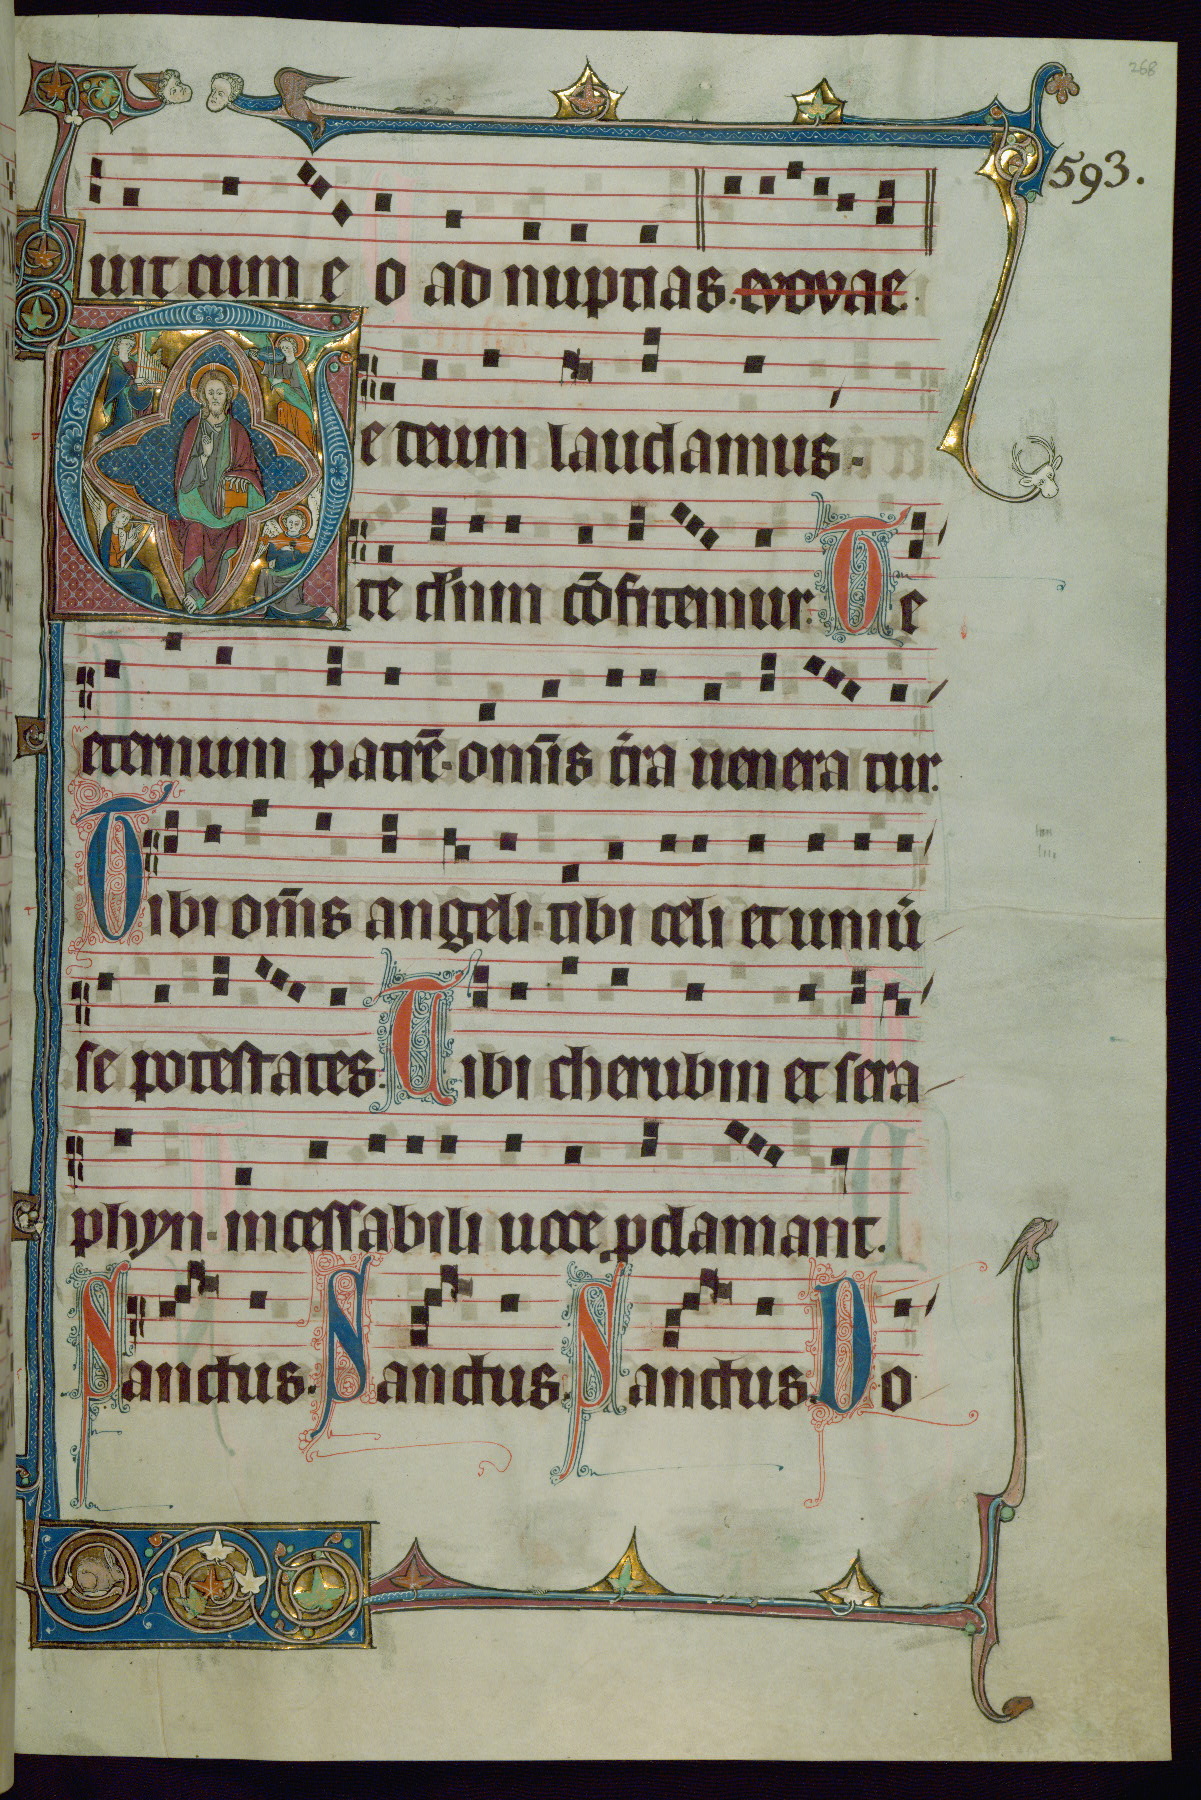 268
593.
uit cum e o ad nuptias. evovae.
Te deum laudamus.
te dn̄um cōfitemur. Te
eternum patrē. omīs t̄ra uenera tur.
Tibi om̄s angeli. tibi celi et uniū
se potestates. Tibi cherubin et sera
phyn. incessabili uoce ꝓclamant.
Sanctus. Sanctus. Sanctus. Do